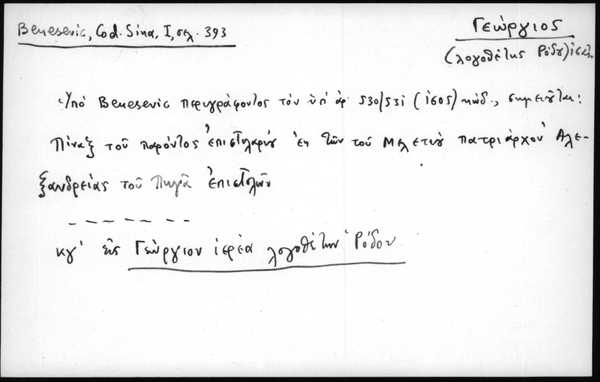 Benesevic, Cod. Sina, I, σελ. 393
Γεώργιος
(λογοθέτης Ρόδου) ἱερ.
Ὑπό Benesevic περιγράφοντος τόν ὑπ' ἀρ. 530/531 (1605) κώδ., σημειοῦται:
Πίναξ τοῦ παρόντος ἐπιστολαρίου ἐκ τῶν τοῦ Μελετίου πατριάρχου Ἀλε-
ξανδρείας τοῦ Πηγᾶ ἐπιστολῶν
- - - - - - -
κγ' εἰς Γεώργιον ἱερέα λογοθέτην Ῥόδου